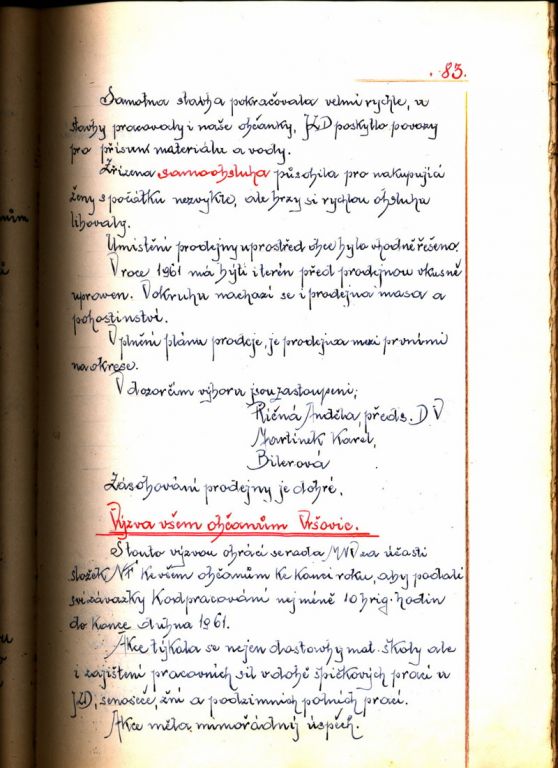 . 83.
Samotna stavba pokračovala velmi rychle, u
stavby pracovaly i naše občanky, JZD poskytlo povozy
pro přísun materiálu a vody.
Zřízena samoobsluha působila pro nakupující
ženy s počátku nezvykle, ale brzy si rychlou obsluhu
libovaly.
Umistění prodejny uprostřed obce bylo vhodně řešeno.
V roce 1961 má býti i terén před prodejnou vkusně
upraven. V okruhu nachazí se i prodejna masa a
pohostinství.
V plnění plánu prodeje, je prodejna mezi prvními
na okrese.
V dozorčím výboru jsou zastoupeni;
Říčná Anděla, předs. D V
Martinek Karel,
Bilerová
Zásobování prodejny je dobré.
Výzva všem občanům Vršovic.
S touto výzvou obrácí se rada MNV za účasti
složek NF ke všem občanům ke konci roku, aby podali
své závazky k odpracování nejméně 10 brig. hodin
do konce dubna 1961.
Akce týkala se nejen dostavby mat. školy ale
i zajištění pracovních sil v době špičkových prací v
JZD, senoseče, žní a podzimních polních prací.
Akce měla mimořádný úspěch.